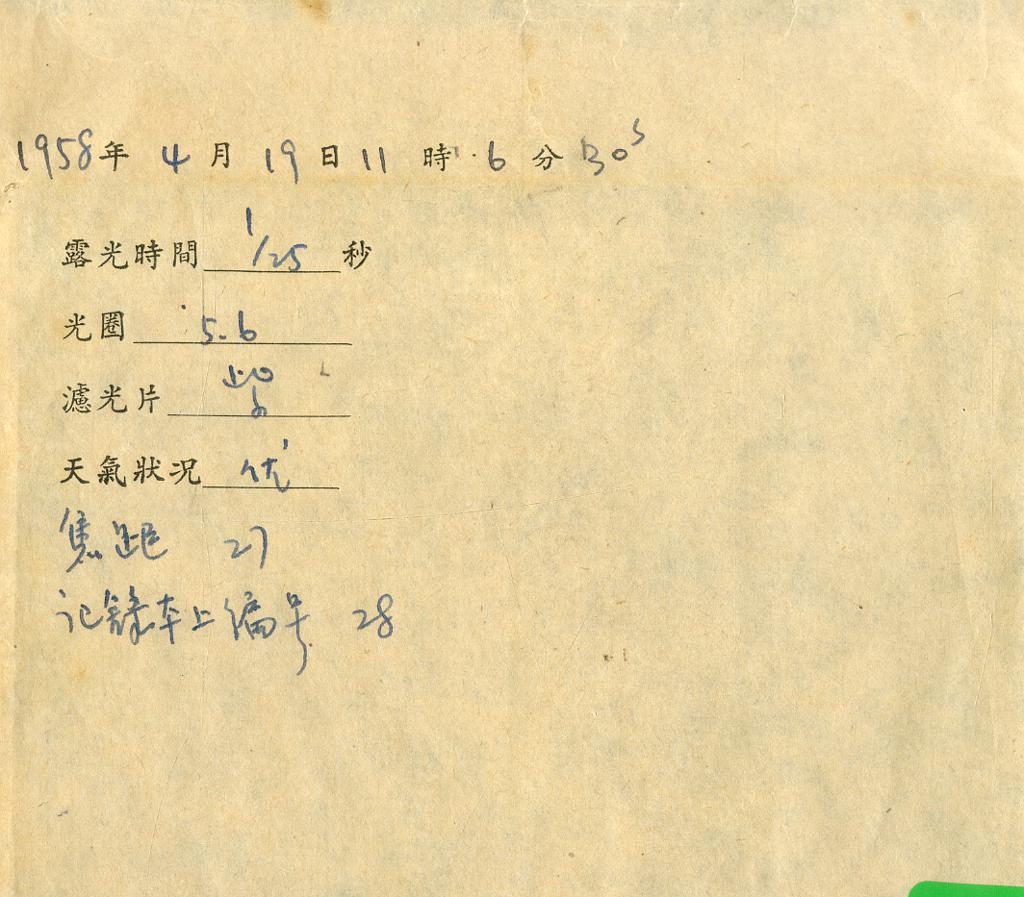 1958年 4月 19日 11時 6分 30s
露光時間 1/25 秒
光圈 5.6
濾光片
天氣狀况 优
焦距 27
记錄本上编号 28